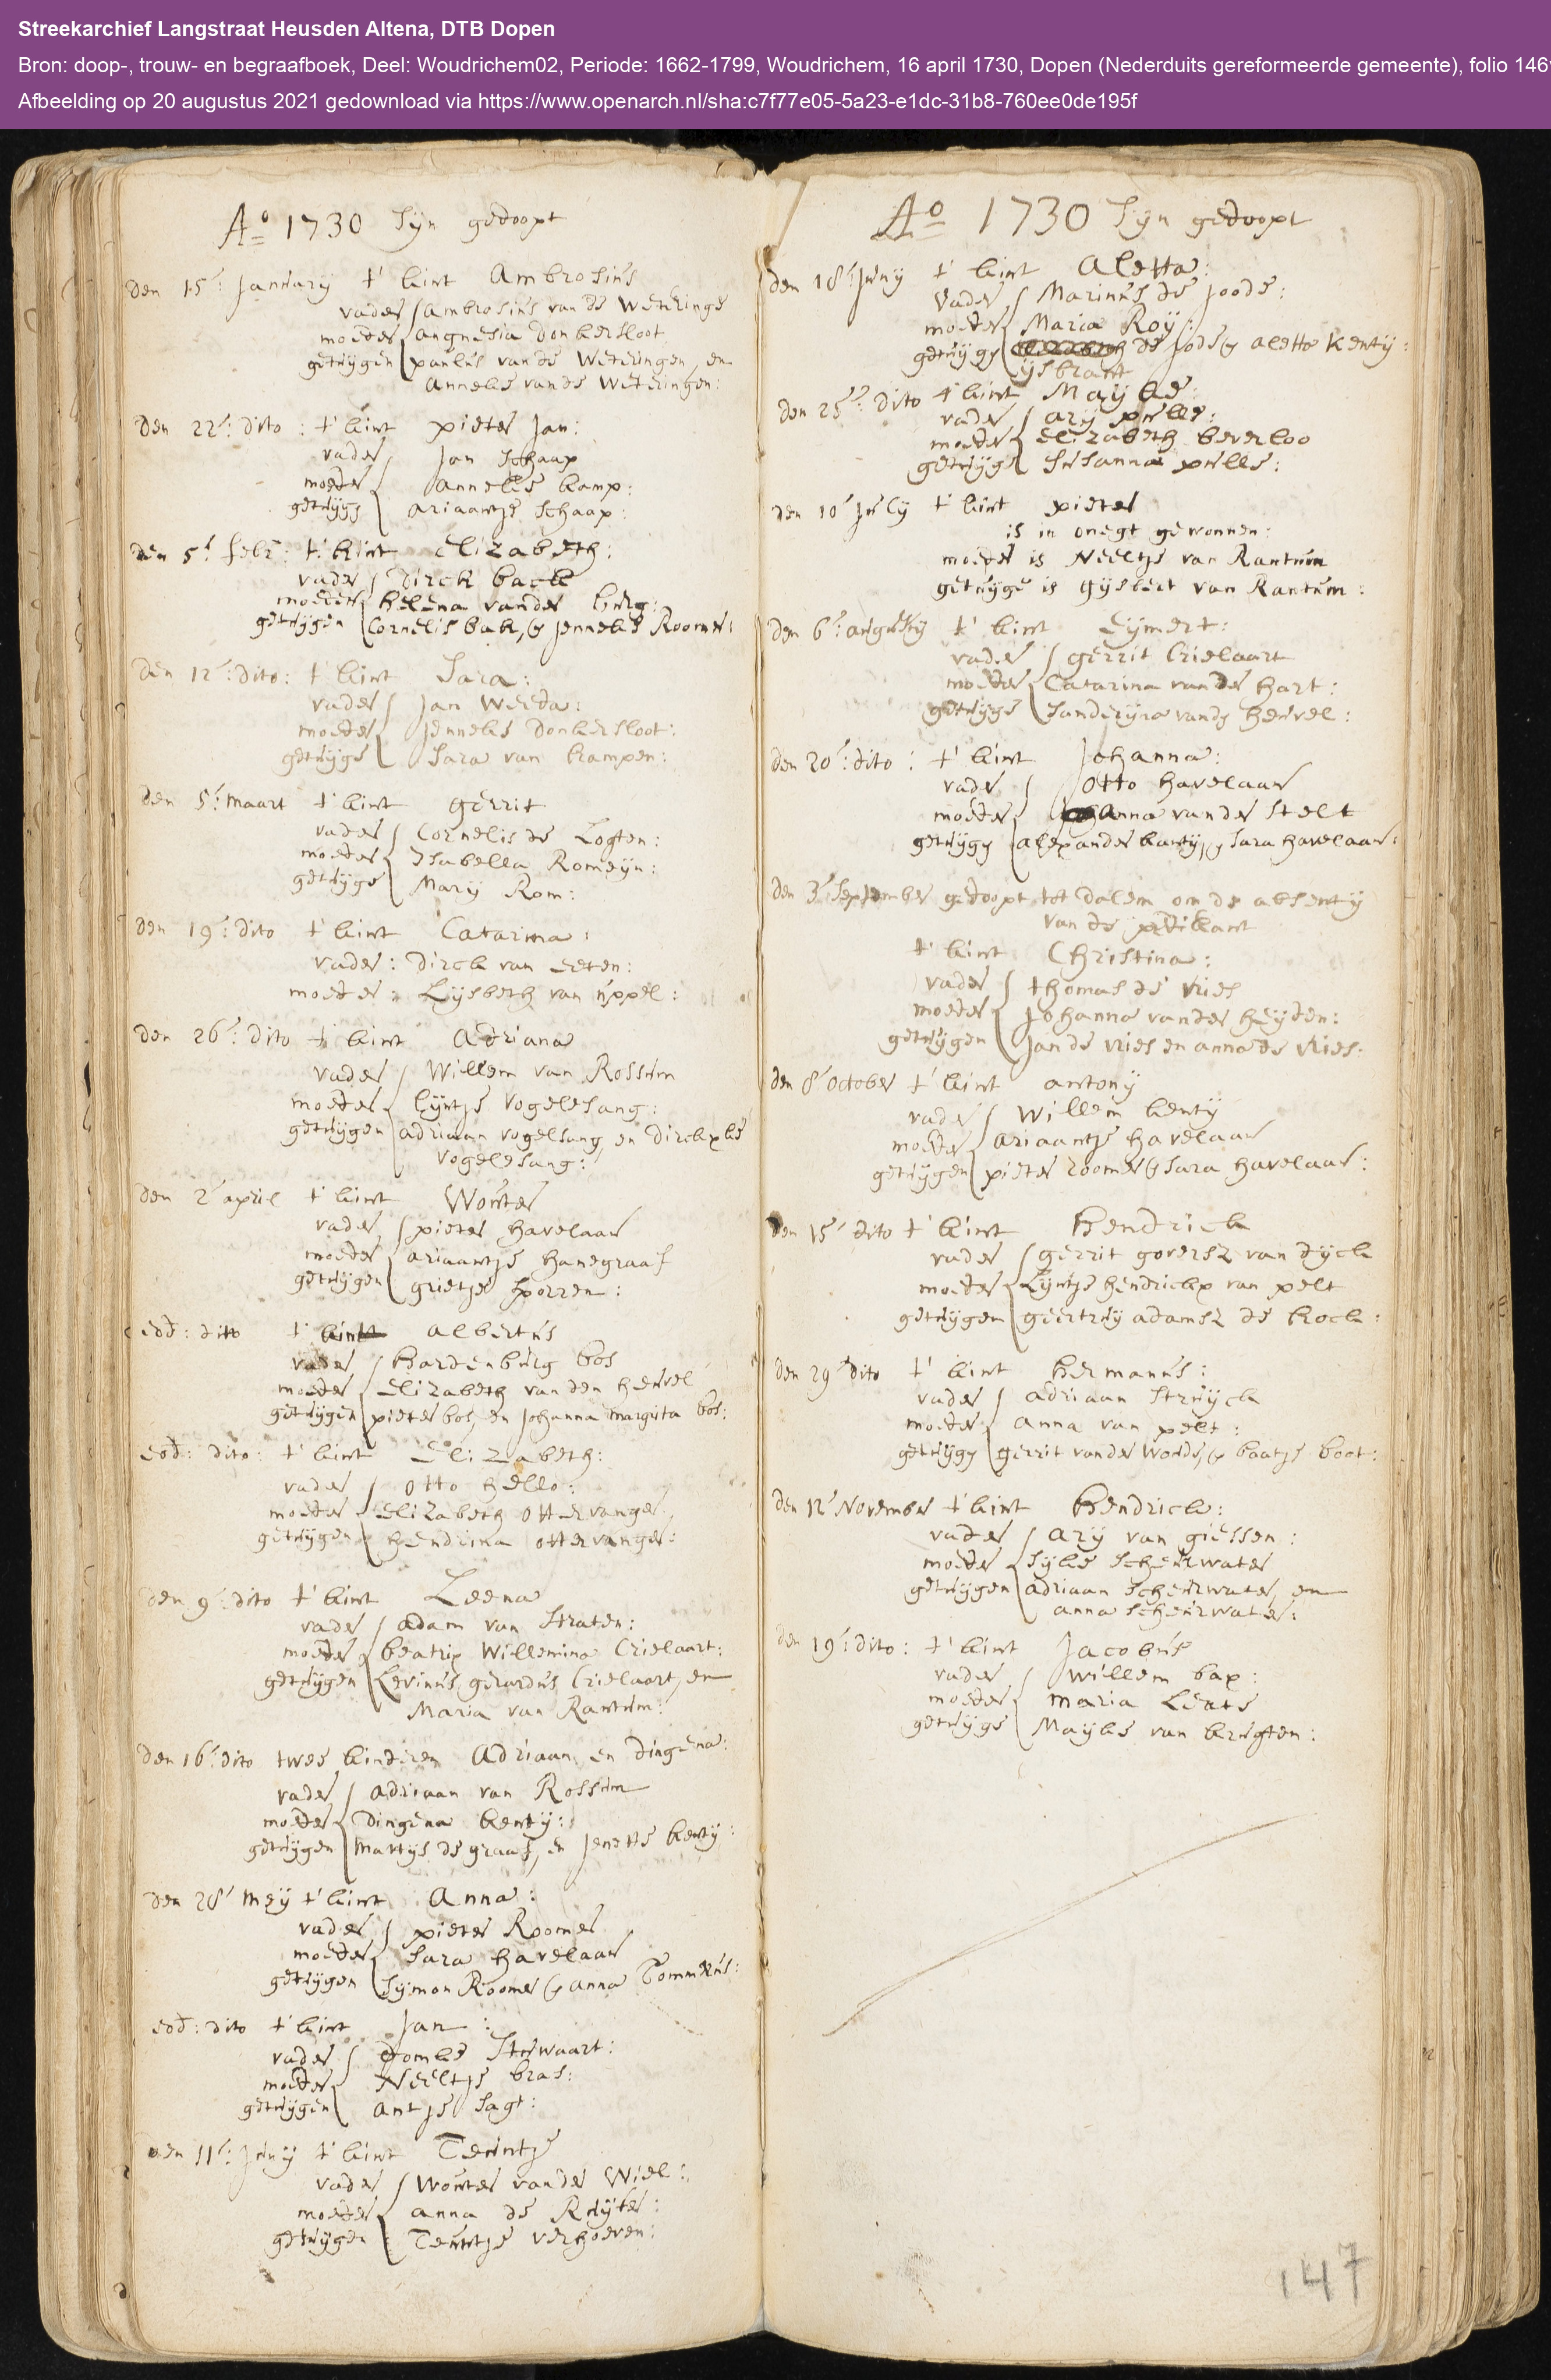 Streekarchief Langstraat Heusden Altena, DTB Dopen
Bron: doop-, trouw- en begraafboek, Deel: Woudrichem02, Periode: 1662-1799, Woudrichem, 16 april 1730, Dopen (Nederduits gereformeerde gemeente), folio 146
Afbeelding op 20 augustus 2021 gedownload via https://www.openarch.nl/sha:c7f77e05-5a23-e1dc-31b8-760ee0de195f
Ao 1730 Sijn gedoopt
den 15: January t' kint Ambrosius
vader Ambrosius van de Weteringe
moeder angnesia donkersloot
getuijgen paulus van de Weteringen, en
Anneke van de Weteringen:
den 22: dito : t' kint pieter Jan:
vader Jan Schaap
moeder anneke kamp:
getuijg ariaantje Schaap:
den 5 febr: t' kint Elizabeth:
vader Dirck back
moeder helena vander burg:
getuijgen Cornelis bak, en Jenneke Roomer:
den 12: dito: t' kint Sara:
vader Jan Weeda:
moeder Jenneke donkersloot:
getuijge Sara van kampen:
den 5: maart t' kint gerrit
vader Cornelis de Logten:
moeder Isabella Romeijn:
getuijge Marij Rom:
den 19: dito t' kint Catarina:
vader: dirck van eeten:
moeder: Lijsbeth van uppel:
den 26: dito t' kint Adriana
vader Willem van Rossum
moeder lijntje vogelesang:
getuijgen adriaan vogelsang, en dirckxke
vogelesang:
den 2 april t' kint Wouter
vader pieter havelaar
moeder ariaantje hanegraaf
getuijgen grietje sporren:
eod: dito t' kint albertus
vader hardenburg bos
moeder Elizabeth van den heuvel
getuijgen pieter bos, en Johanna margrita bos:
eod: dito: t' kint Elizabeth:
vader otto hello:
moeder Elizabeth ottervanger,
getuijgen hendrina ottervanger:
den 9: dito t' kint Leena
vader adam van Straten:
moeder beatrix Willemina Crielaart:
getuijgen Levinus gerardus Crielaart, en
Maria van Rantum:
den 16: dito twee kinderen Adriaan en dingena:
vader adriaan van Rossum
moeder dingena kentij:
getuijgen Martijs de graaf, en Jenette kentij:
den 28 meij t' kint Anna:
vader pieter Roomer
moeder Sara havelaar
getuijgen Sijmon Roomer en anna Commerus:
eod: dito t' kint Jan:
vader Stuwaart:
moeder Neeltje bras:
getuijgen antje Sagt:
den 11: Junij t' kint Teuntje
vader Wouter vander Wiel:
moeder anna de Ruijter:
getuijgen Teuntje verhoeven:
Ao 1730 Sijn gedoopt
den 18: Junij t' kint Aletta:
vader Marinus de Joode:
moeder Maria Roij:
getuijg de Jode en aletta kentij:
ijsbrant
den 25: dito t' kint Maijke:
vader arij pulle:
moeder Elizabeth beverloo
getuijge Susanna pulle:
den 10 Julij t' kint pieter
is in onegt gewonnen:
moeder is Neeltje van Rantum
getuijge is gijsbert van Rantum:
den 6: augustij t' kint Eijmert:
vader gerrit Crielaart
moeder Catarina vander hart:
getuijge Sanderijna vand heuvel:
den 20: dito: t' kint Johanna:
vader otto havelaar
moeder anna vander Stelt
getuijg alexander kentij, en Sara havelaar:
den 3 September gedoopt tot dalem om de absentij
van de predikant
t' kint Christina:
vader thomas de vries
moeder Johanna vander heijden:
getuijgen Jan de vries en anna de vries:
den 8 october t' kint antonij
vader Willem kentij
moeder ariaantje havelaar
getuijgen pieter roomer en Sara havelaar:
den 15 dito t' kint Hendrick
vader gerrit goversz van dijck
moeder Lijntje hendrickx van pelt
getuijgen geertruij adamsz de kock:
den 29 dito t' kint hermanus:
vader adriaan Struijck
moeder anna van pelt:
getuijg gerrit vander Woude, en baatje boot:
den 12 November t' kint Hendrick:
vader arij van giessen:
moeder Sijke Scheurwater
getuijgen adriaan Scheurwater, en
anna Scheurwater:
den 19: dito: t' kint Jacobus
vader Willem bax:
moeder maria
getuijge Maijke van brugten:
147